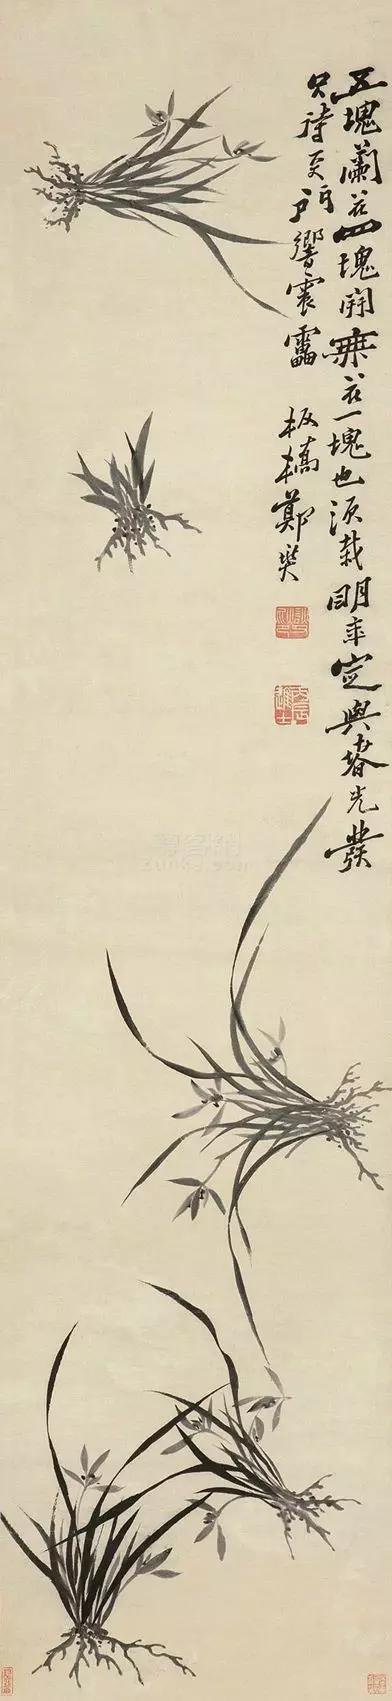 五塊蘭花四塊開無花一塊也須栽明年定與春光發
只待天門響震靁 板橋鄭燮
丙辰進士